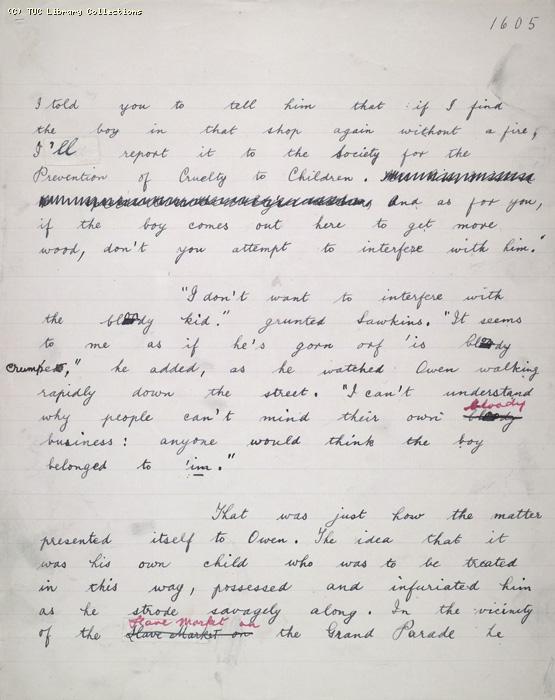 (C) TUC Library Collections
1605
I told you to tell him that if I find
the boy in that shop again without a fire,
I'll report it to the Society for the
Prevention of Cruelty to Children.
And as for you,
if the boy comes out here to get more
wood, don't you attempt to interfere with him."
"I don't want to interfere with
the bloody kid." grunted Sawkins. "It seems
to me as if he's gorn orf 'is bloody
crumpet," he added, as he watched Owen walking
rapidly down the street. "I can't understand
bloody
why people can't mind their own bloody
business: anyone would think the boy
belonged to 'im."
That was just how the matter
presented itself to Owen. The idea that it
was his own child who was to be treated
in this way, possessed and infuriated him
as he strode savagely along. In the vicinity
Slave Market on
of the Slave Market on the Grand Parade he